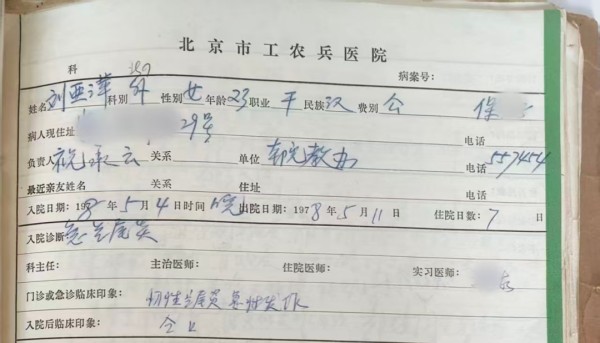 北京市工农兵医院
科 病案号：
姓名 刘亚萍 科别 外 性别 女 年龄 23 职业 干 民族 汉 费别 公
病人现住址 29号 电话
负责人 祝承云 关系 单位 教办 电话 557454
最近亲友姓名 关系 住址 电话
入院日期：1978年5月4日时间 晚 出院日期：1978年5月11日 住院日数：7 日
入院诊断 急性阑尾炎
科主任： 主治医师： 住院医师： 实习医师：
门诊或急诊临床印象： 慢性阑尾炎急性发作
入院后临床印象： 仝上